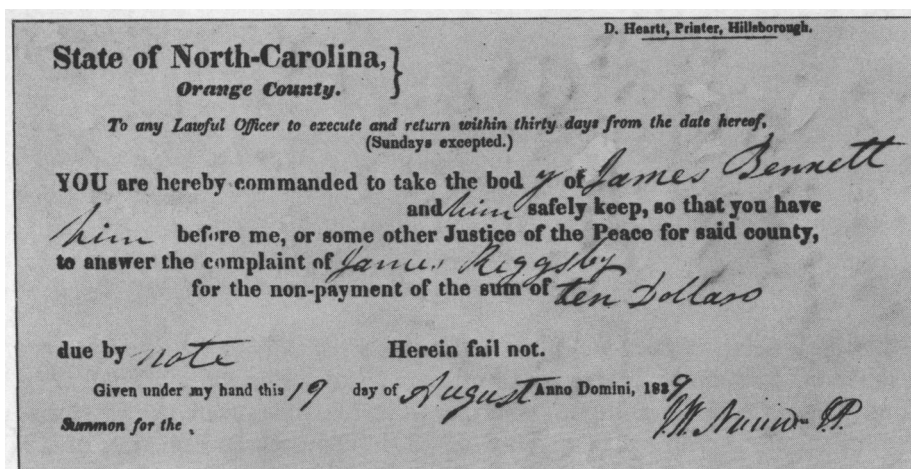 D. Heartt, Printer, Hillsborough.
State of North-Carolina, }
Orange County.
To any Lawful Officer to execute and return within thirty days from the date hereof,
(Sundays excepted.)
YOU are hereby commanded to take the bod y of James Bennett
and him safely keep, so that you have
him before me, or some other Justice of the Peace for said county,
to answer the complaint of James Riggsby
for the non-payment of the sum of ten Dollars
due by note Herein fail not.
Given under my hand this 19 day of August Anno Domini, 1839
Summon for the
J.P.